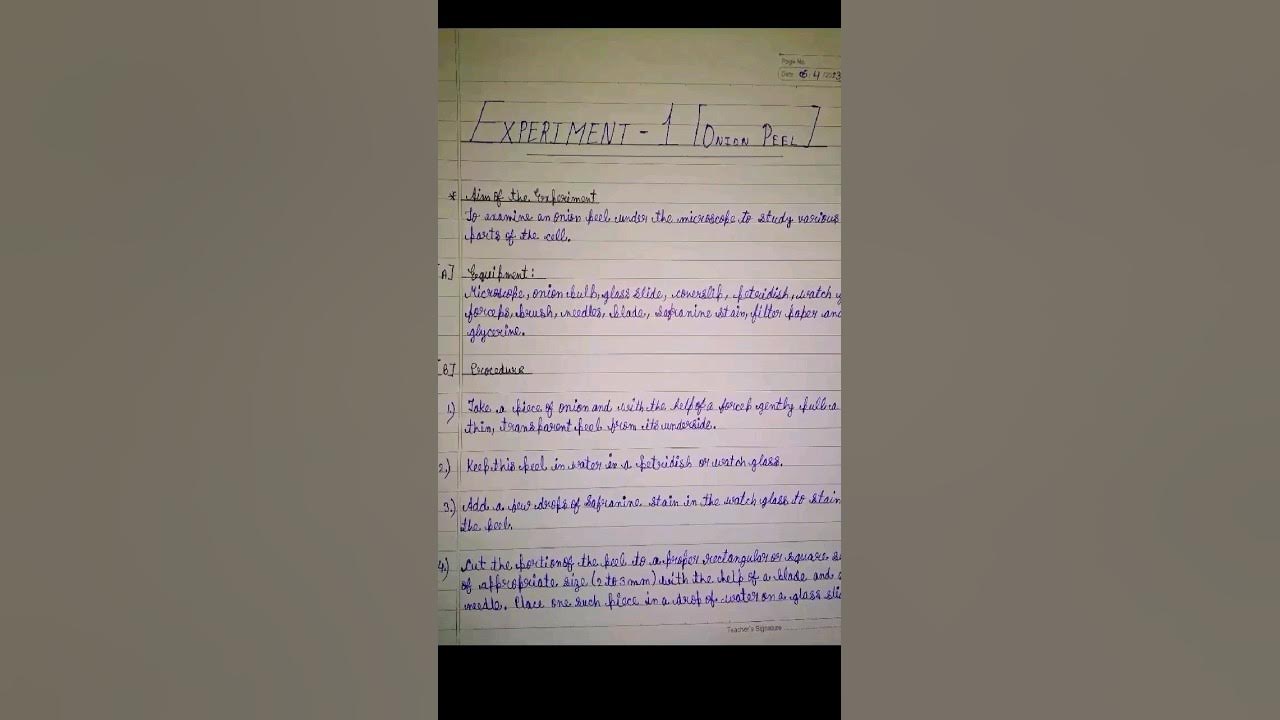 Page No.
Date 05.4/2023
EXPERIMENT - 1 [ONION PEEL]
* Aim of the Experiment
To examine an onion peel under the microscope to study various
parts of the cell.
[A] Equipment:
Microscope, onion bulb, glass slide, coverslip, petridish, watch
forceps, brush, needles, blade, safranine stain, filter paper and
glycerine.
[B] Procedure
1.) Take a piece of onion and with the help of a forcep gently pull a
thin, transparent peel from its underside.
2.) Keep this peel in water in a petridish or watch glass.
3.) Add a few drops of Safranine stain in the watch glass to stain
the peel.
4.) Cut the portion of the peel to a proper rectangular or square
of appropriate size (2 to 3 mm) with the help of a blade and
needle. Place one such piece in a drop of water on a glass
Teacher's Signature